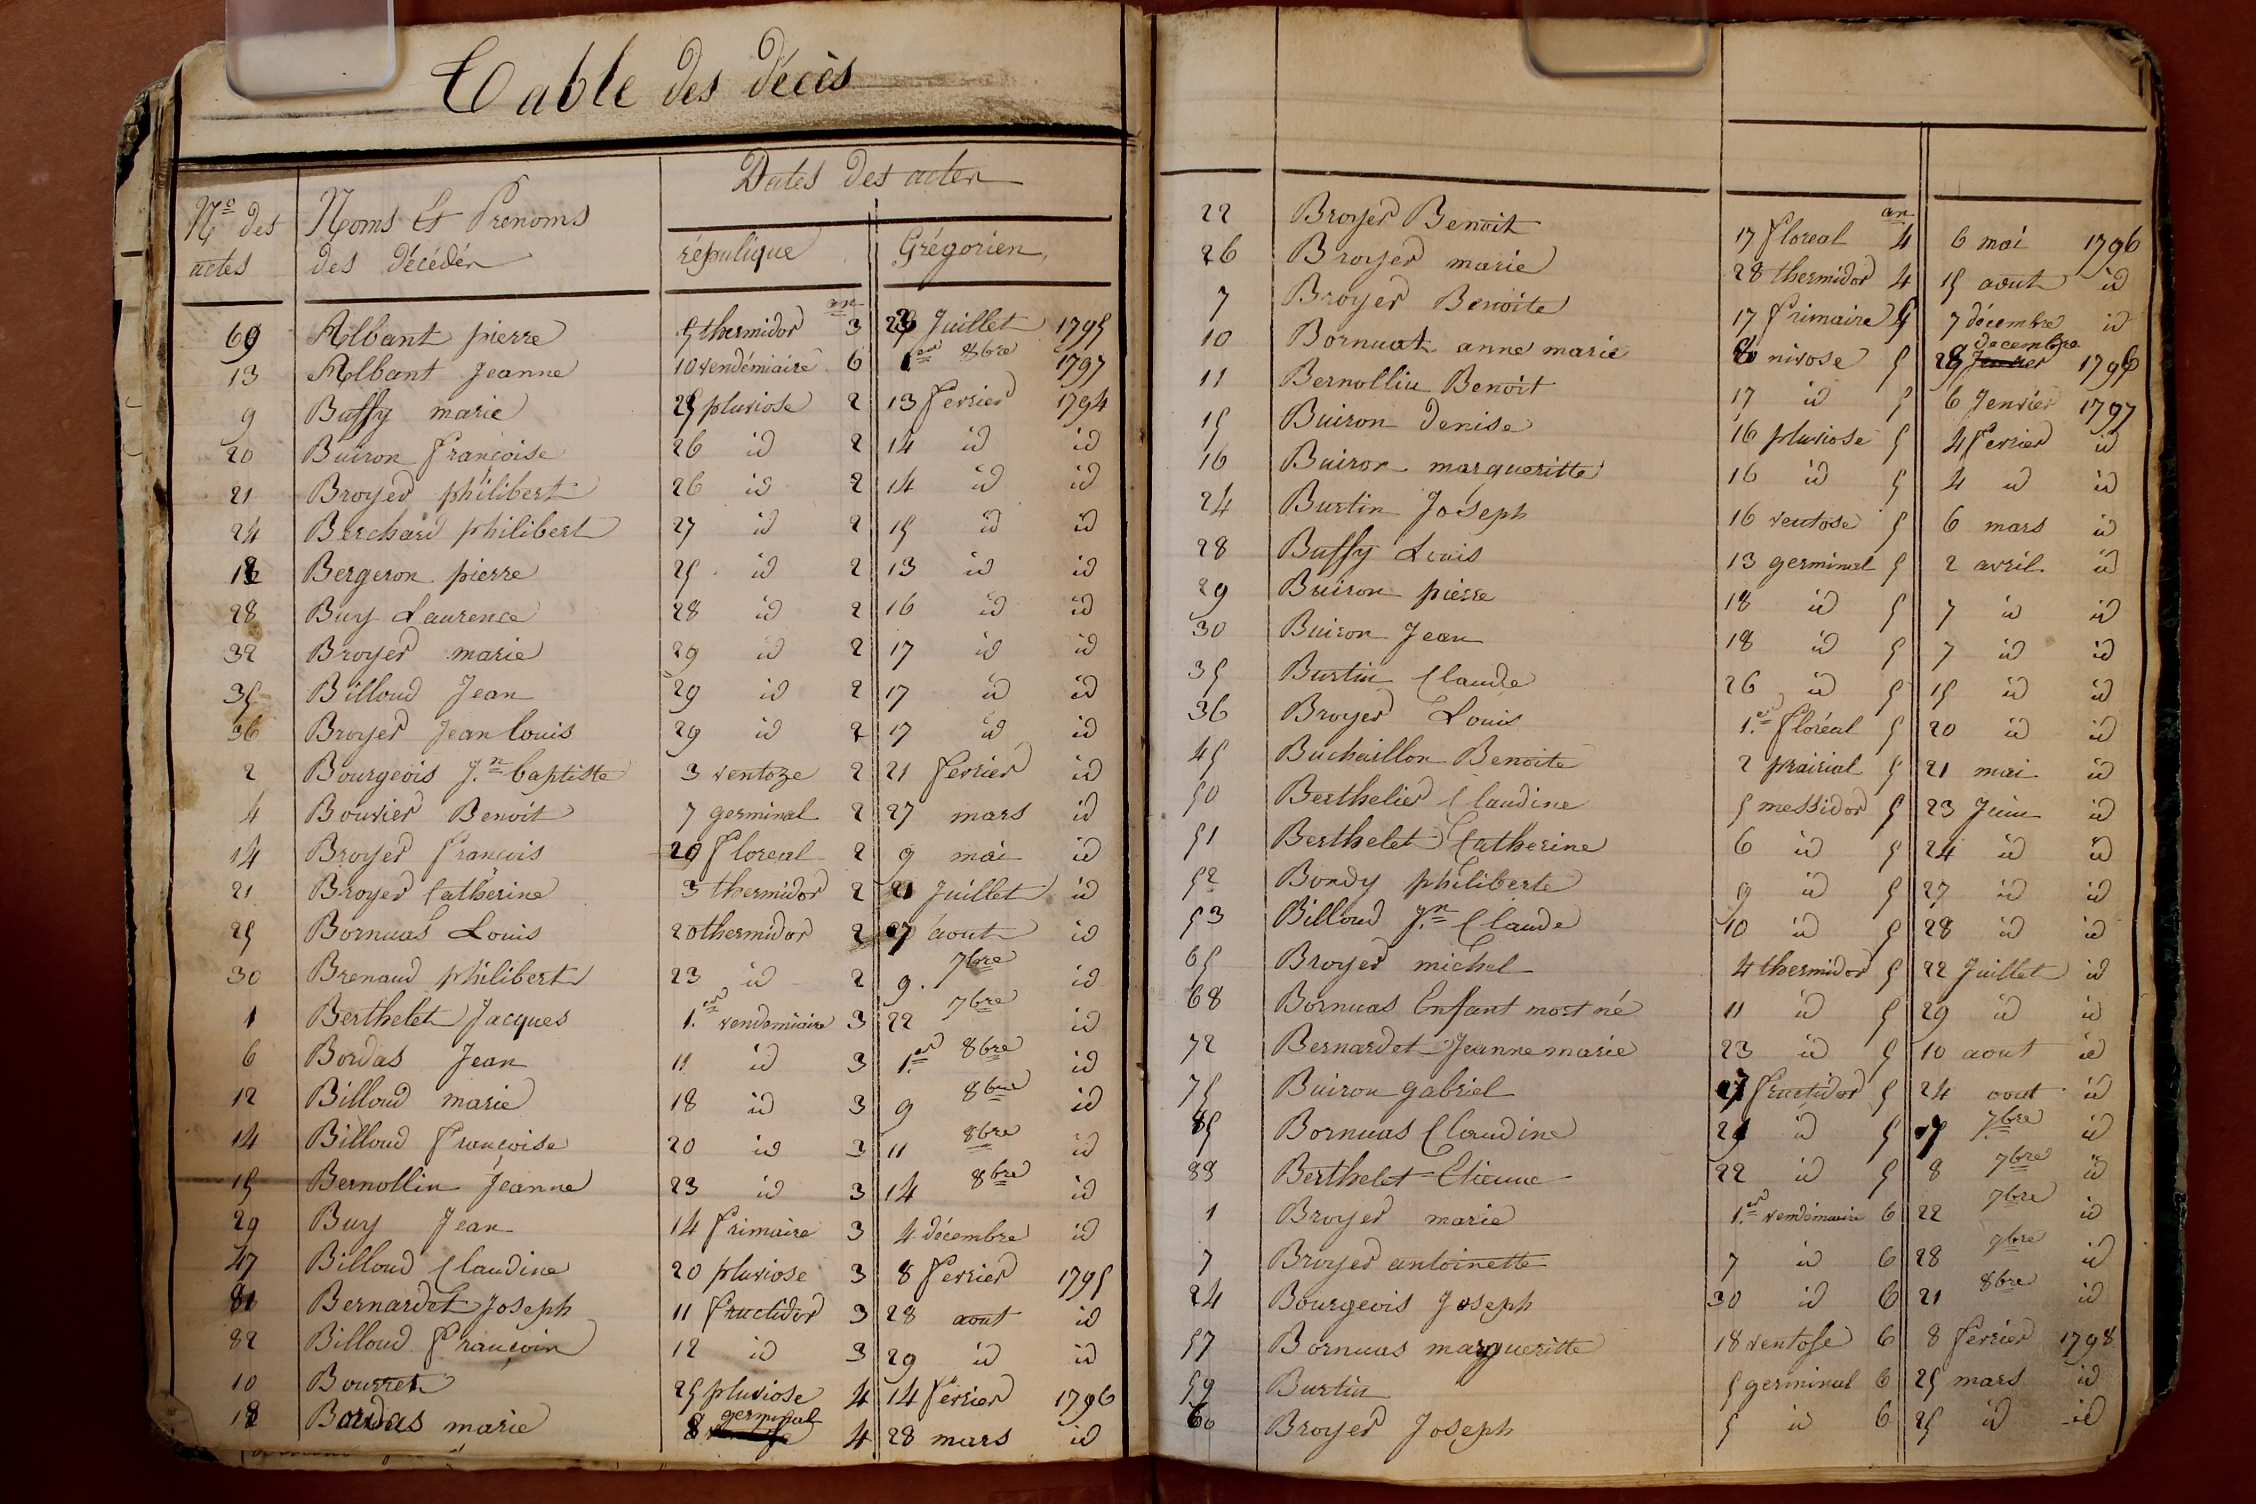 Table des décès
Dates des actes
N.º des Noms Et Prenoms
actes des décédés républiqe Grégorien
an
69 Albant pierre 5 thermidor 3 23 Juillet 1795
13 Albant Jeanne 10 vendémiaire 6 1er 8bre 1797
9 Buffy marie 25 pluviose 2 13 fevrier 1794
20 Buiron françoise 26 id 2 14 id id
21 Broyer philibert 26 id 2 14 id id
24 Berchard philibert 27 id 2 15 id id
Bergeron pierre 25 id 2 13 id id
28 Buy Laurence 28 id 2 16 id id
32 Broyer marie 29 id 2 17 id id
35 Billoud Jean 29 id 2 17 id id
36 Broyer Jean Louis 29 id 2 17 id id
2 Bourgeois J.n baptiste 3 ventoze 2 21 fevrier id
4 Bouvier Benoit 7 germinal 2 27 mars id
14 Broyer françois 20 floreal 2 9 mai id
21 Broyer Catherine 3 thermidor 2 21 Juillet id
25 Bornuas Louis 20 thermidor 2 7 aout id
30 Brenaud philibert 23 id 2 9. 7bre id
1 Berthelet Jacques 1.er vendemiaire 3 22 7bre id
6 Bordas Jean 11 id 3 1.er 8bre id
12 Billoud marie 18 id 3 9 8bre id
14 Billoud françoise 20 id 3 11 8bre id
15 Bernollin Jeanne 23 id 3 14 8bre id
29 Buy Jean 14 frimaire 3 4 décembre id
47 Billoud Claudine 20 pluviose 3 8 fevrier 1795
81 Bernardet Joseph 11 fructidor 3 28 aout id
82 Billoud françois 12 id 3 29 id id
10 Bourret 25 pluviose 4 14 fevrier 1796
Bordas marie 8 germinal 4 28 mars id
an
22 Broyer Benoit 17 floreal 4 6 mai 1796
26 Broyer marie 28 thermidor 4 15 aout id
7 Broyer Benoite 17 frimaire 5 7 décembre id
10 Bornuat anne marie 8 nivose 5 28 decembre 1796
11 Bernollin Benoit 17 id 5 6 Jenvier 1797
15 Buiron denise 16 pluviose 5 4 fevrier id
16 Buiron margueritte 16 id 5 4 id id
24 Burtin Joseph 16 ventose 5 6 mars id
28 Buffy Louis 13 germinal 5 2 avril id
29 Buiron pierre 18 id 5 7 id id
30 Buiron Jean 18 id 5 7 id id
35 Burtin Claude 26 id 5 15 id id
36 Broyer Louis 1.er floréal 5 20 id id
45 Buchaillon Benoite 2 prairial 5 21 mai id
50 Berthelier Claudine 5 messidor 5 23 Juin id
51 Berthelet Catherine 6 id 5 24 id id
52 Bondy philiberte 9 id 5 27 id id
53 Billoud J.n Claude 10 id 5 28 id id
65 Broyer michel 4 thermidor 5 22 Juillet id
68 Bornuas Enfant mort né 11 id 5 29 id id
72 Bernardet Jeanne marie 23 id 5 10 aout id
75 Buiron gabriel 7 fructidor 5 24 aout id
85 Bornuas Claudine 21 id 5 7 7bre id
88 Berthelet Etienne 22 id 5 8 7bre id
1 Broyer marie 1.er vendémiaire 6 22 7bre id
7 Broyer antoinette 7 id 6 28 7bre id
24 Bourgeois Joseph 30 id 6 21 8bre id
57 Bornuas margueritte 18 ventose 6 8 fevrier 1798
59 Burtin 5 germinal 6 25 mars id
60 Broyer Joseph 5 id 6 25 id id